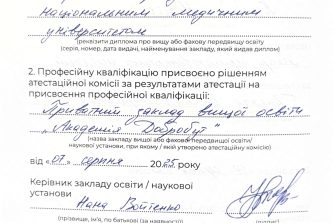 Національним медичним
університетом
(реквізити диплома про вищу або фахову передвищу освіту
(серія, номер, дата видачі, найменування закладу, який видав диплом)
2. Професійну кваліфікацію присвоєно рішенням
атестаційної комісії за результатами атестації на
присвоєння професійної кваліфікації:
Приватний заклад вищої освіти
„Академія Добробут"
(назва закладу вищої або фахової передвищої освіти/
наукової установи, при якому / якій утворено атестаційну комісію)
від „01" серпня 2025 року
Керівник закладу освіти / наукової
установи
Нана Войтенко
(прізвище, ім'я, по батькові (за наявності)